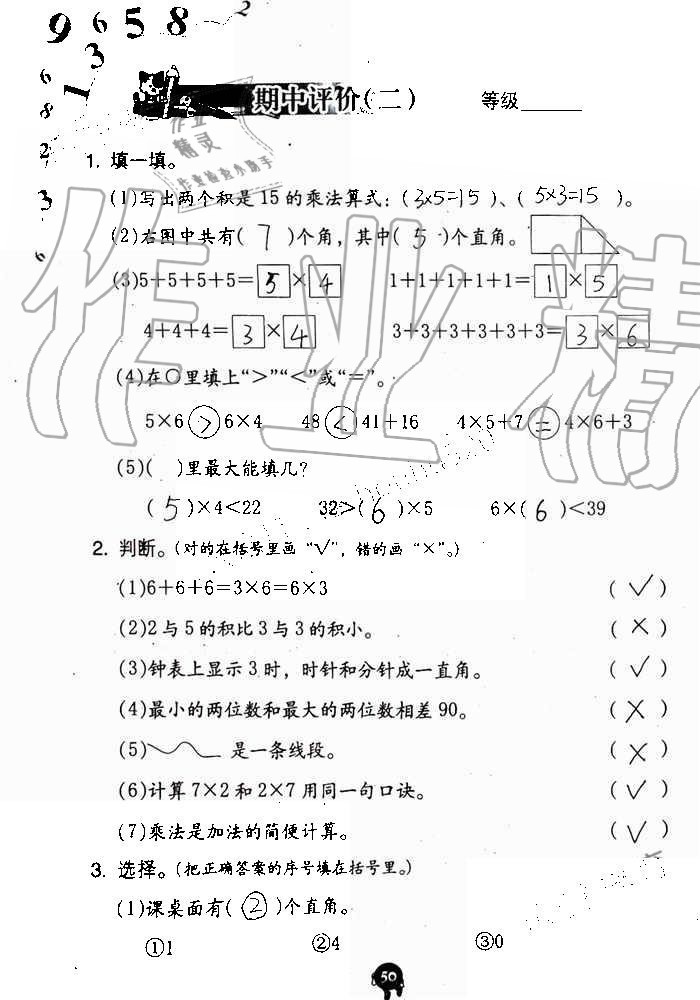 9 6 5 8 2
3
6 1
8
2
3
6
期中评价(二) 等级______
作业
精灵
作业检查小助手
1. 填一填。
(1)写出两个积是 15 的乘法算式:(3×5=15)、(5×3=15)。
(2)右图中共有(7)个角,其中(5)个直角。
(3)5+5+5+5=5×4 1+1+1+1+1=1×5
4+4+4=3×4 3+3+3+3+3+3=3×6
(4)在○里填上“>”“<”或“=”。
5×6>6×4 48<41+16 4×5+7=4×6+3
(5)( )里最大能填几?
(5)×4<22 32>(6)×5 6×(6)<39
2. 判断。(对的在括号里画“√”,错的画“×”。)
(1)6+6+6=3×6=6×3 (√)
(2)2与5的积比3与3的积小。 (×)
(3)钟表上显示3时,时针和分针成一直角。 (√)
(4)最小的两位数和最大的两位数相差90。 (×)
(5) 是一条线段。 (×)
(6)计算7×2和2×7用同一句口诀。 (√)
(7)乘法是加法的简便计算。 (√)
3. 选择。(把正确答案的序号填在括号里。)
(1)课桌面有(②)个直角。
①1 ②4 ③0
50
作业精